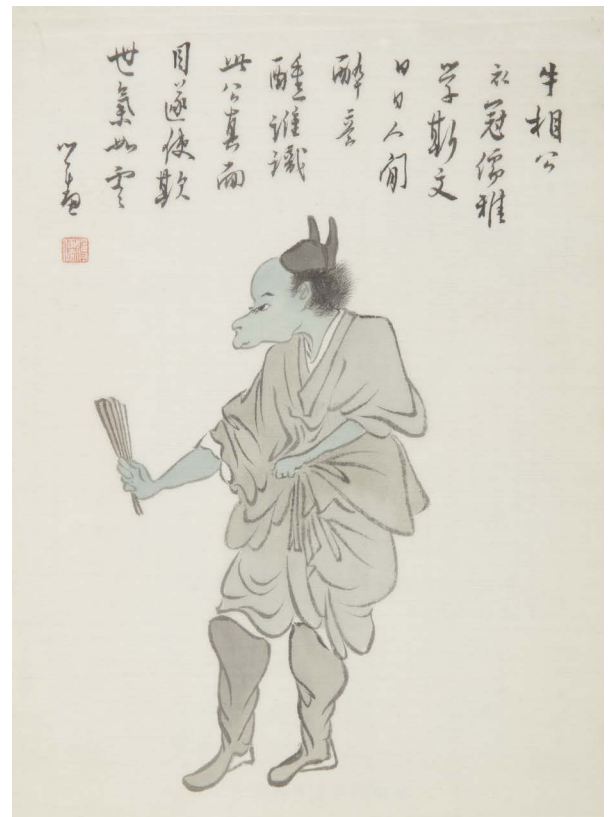 牛相公
衣冠儒雅
學斯文
日日人間
醉意
醺誰識
此公真面
目遂使欺
世氣如雲
心畬